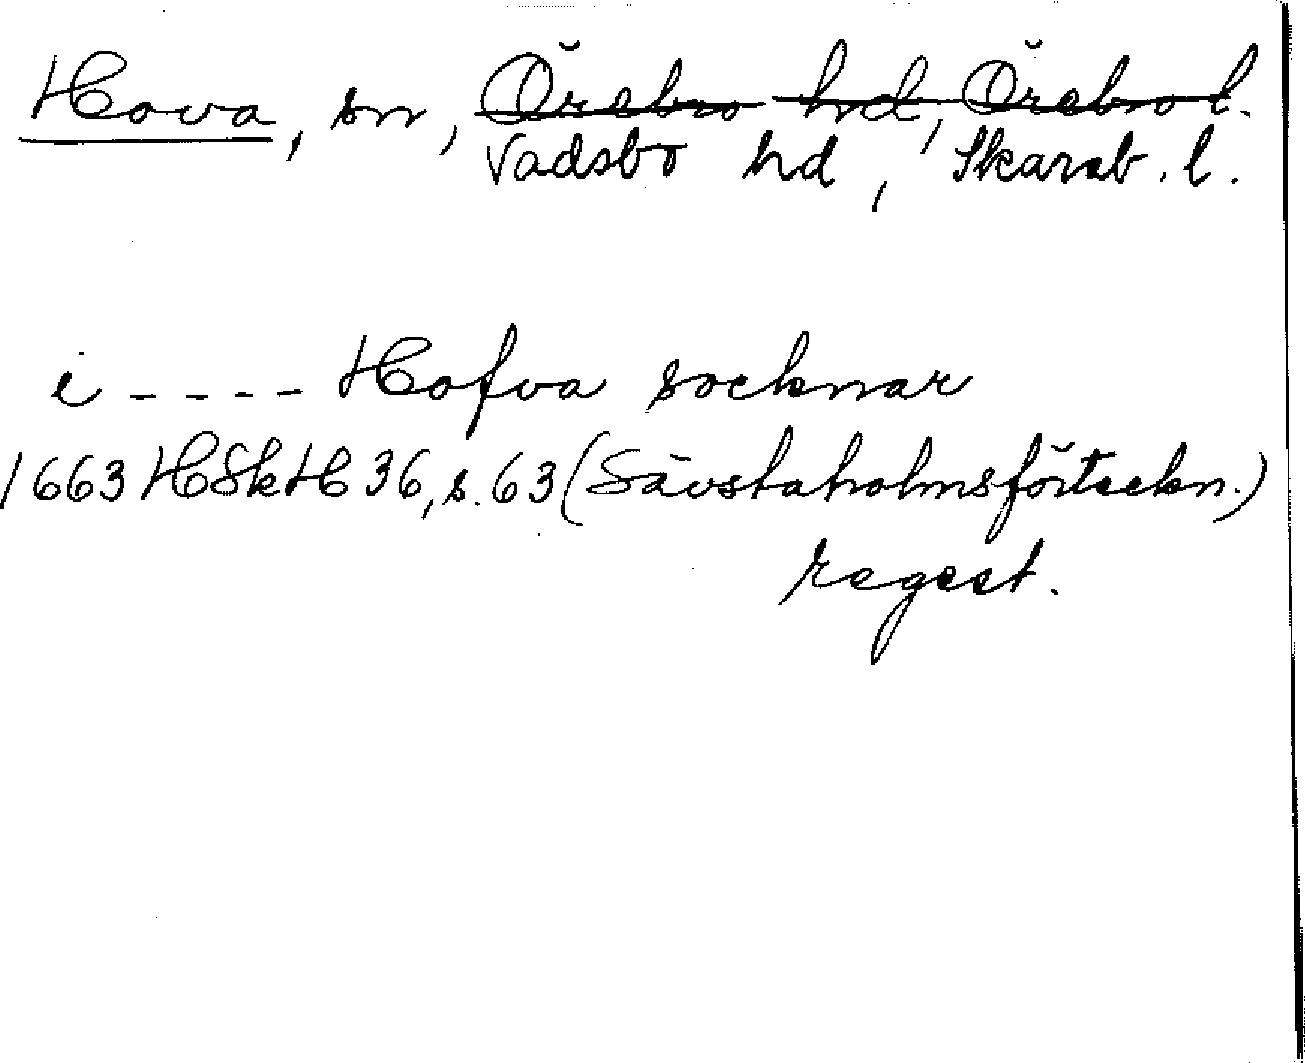 Hova, sn, Örebro hd, Örebro l.
Vadsbo hd, Skarab. l.
i - - - - Hofva socknar
1663 HSkH 36, s. 63 (Sävstaholmsförteckn.)
regest.